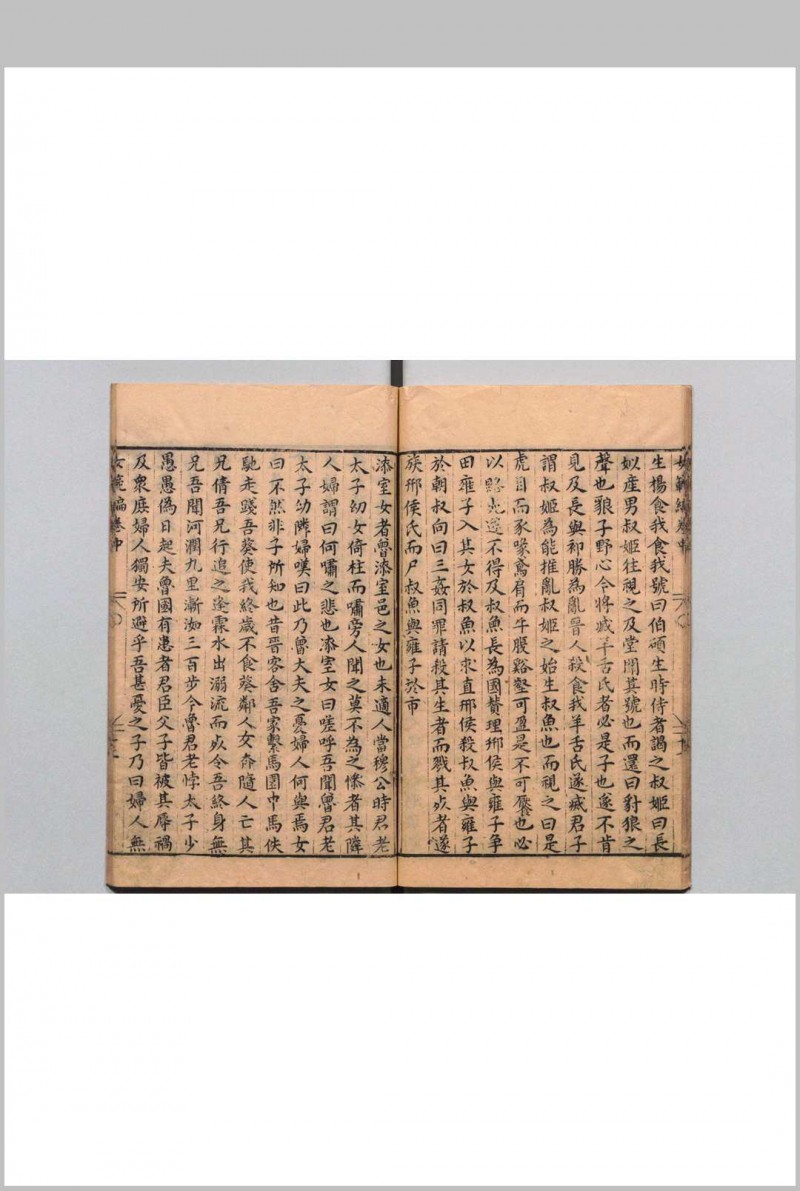 女範編卷中
生楊食我食我號曰伯碩生時侍者謁之叔姬曰長
姒産男叔姬往視之及堂聞其號也而還曰豺狼之
聲也狼子野心今將滅羊舌氏者必是子也遂不肯
見及長與祁勝為亂晉人殺食我羊舌氏遂滅君子
謂叔姬為能推亂叔姬之始生叔魚也而視之曰是
虎目而豕喙鳶肩而牛腹谿壑可盈是不可饜也必
以賂死遂不得及叔魚長為國贊理邢侯與雍子爭
田雍子入其女於叔魚以求直邢侯殺叔魚與雍子
於朝叔向曰三姦同罪請殺其生者而戮其死者遂
族邢侯氏而尸叔魚與雍子於市
漆室女者魯漆室邑之女也未適人當穆公時君老
太子幼女倚柱而嘯旁人聞之莫不為之慘者其隣
人婦謂曰何嘯之悲也漆室女曰嗟呼吾聞魯君老
太子幼隣婦嘆曰此乃魯大夫之憂婦人何與焉女
曰不然非子所知也昔晉客舍吾家繫馬園中馬佚
馳走踐吾葵使我終歲不食葵鄰人女奔隨人亡其
兄倩吾兄行追之逢霖水出溺流而死令吾終身無
兄吾聞河潤九里漸洳三百步今魯君老悖太子少
愚愚偽日起夫魯國有患者君臣父子皆被其辱禍
及衆庶婦人獨安所避乎吾甚憂之子乃曰婦人無
女範編卷中